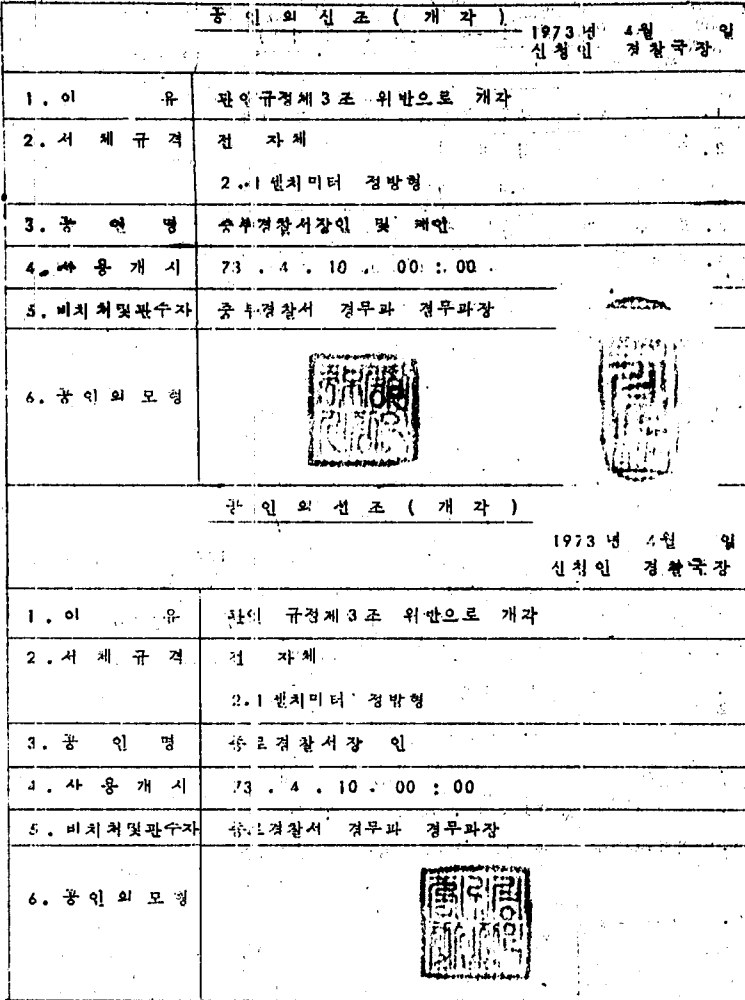 공인의신조(개각)
1973년 4월 일
신청인 경찰국장
1. 이 유 관인규정제3조 위반으로 개각
2. 서체규격 전 자체
2.1센치미터 정방형
3. 공 인 명 중부경찰서장인 및 계인
4. 사용개시 73. 4. 10. 00:00
5. 비치처및관수자 중부경찰서 경무과 경무과장
6. 공인의모형
공인의선조(개각)
1973년 4월 일
신청인 경찰국장
1. 이 유 관인 규정제3조 위반으로 개각
2. 서체규격 전 자체
2.1센치미터 정방형
3. 공 인 명 종로경찰서장 인
4. 사용개시 73. 4. 10. 00:00
5. 비치처및관수자 종로경찰서 경무과 경무과장
6. 공인의모형